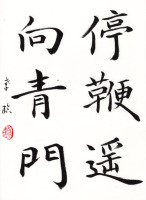 停鞭遥
向青門